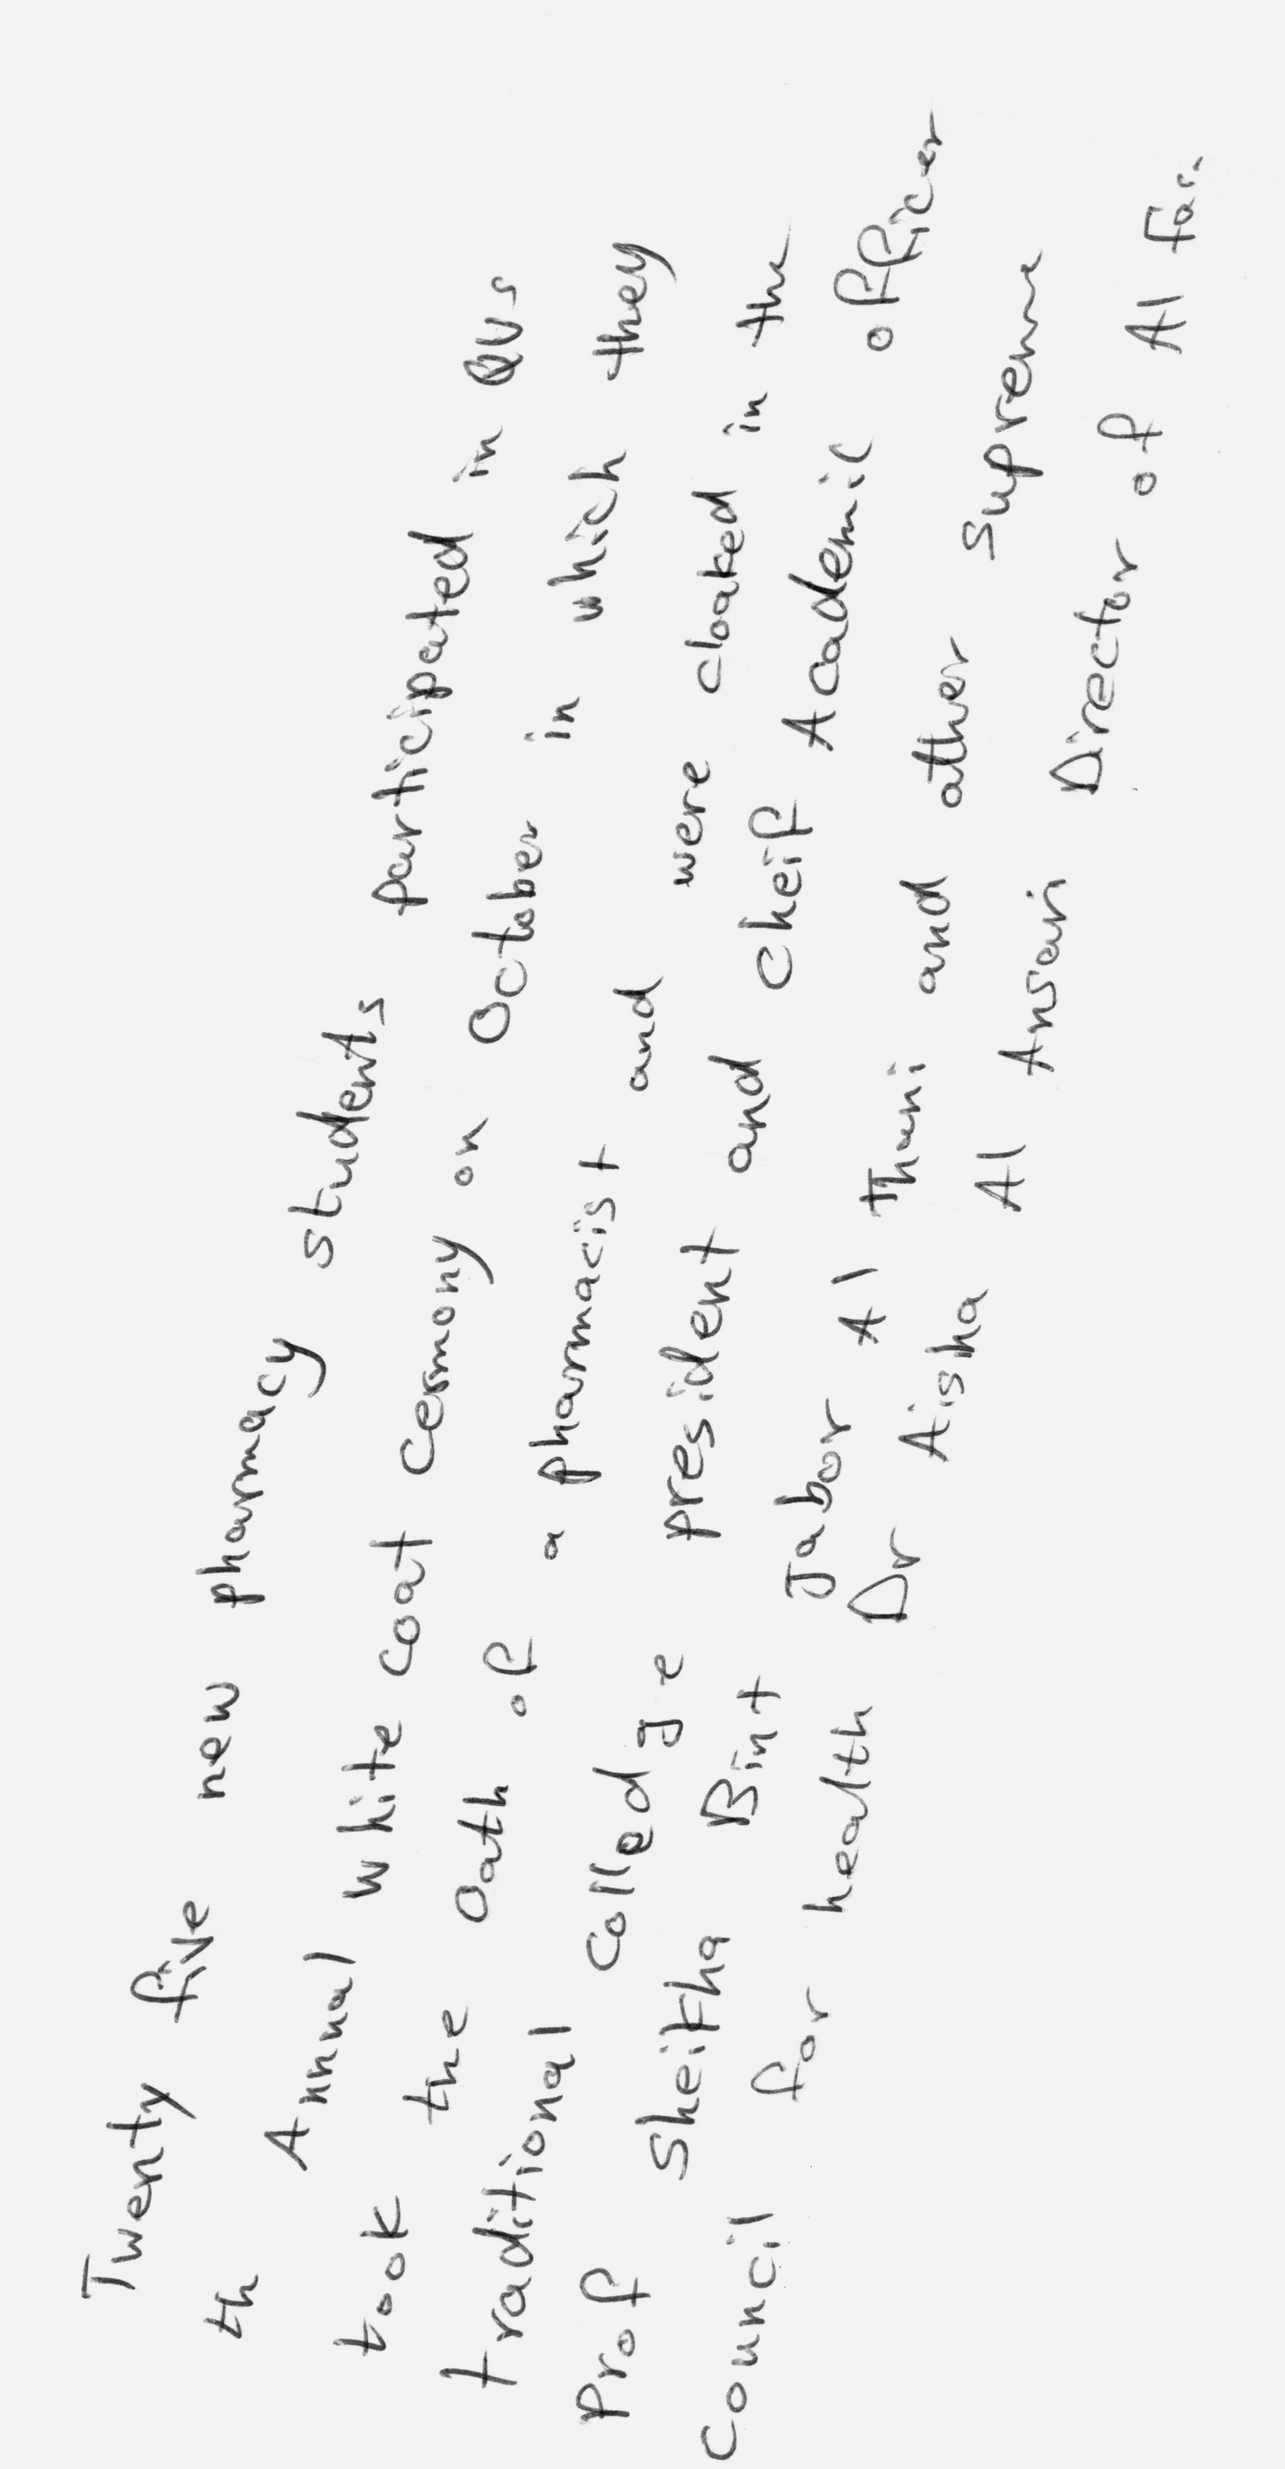 Twenty five new pharmacy students participated in QUs
th Annual white coat cermony on October in which they
took the Oath of a pharmacist and were cloaked in the
traditional colledge president and cheif Academic officer
Prof Sheikha Bint Jabor Al Thani and other Supreme
council for health Dr Aisha Al Ansari Director of Al Far